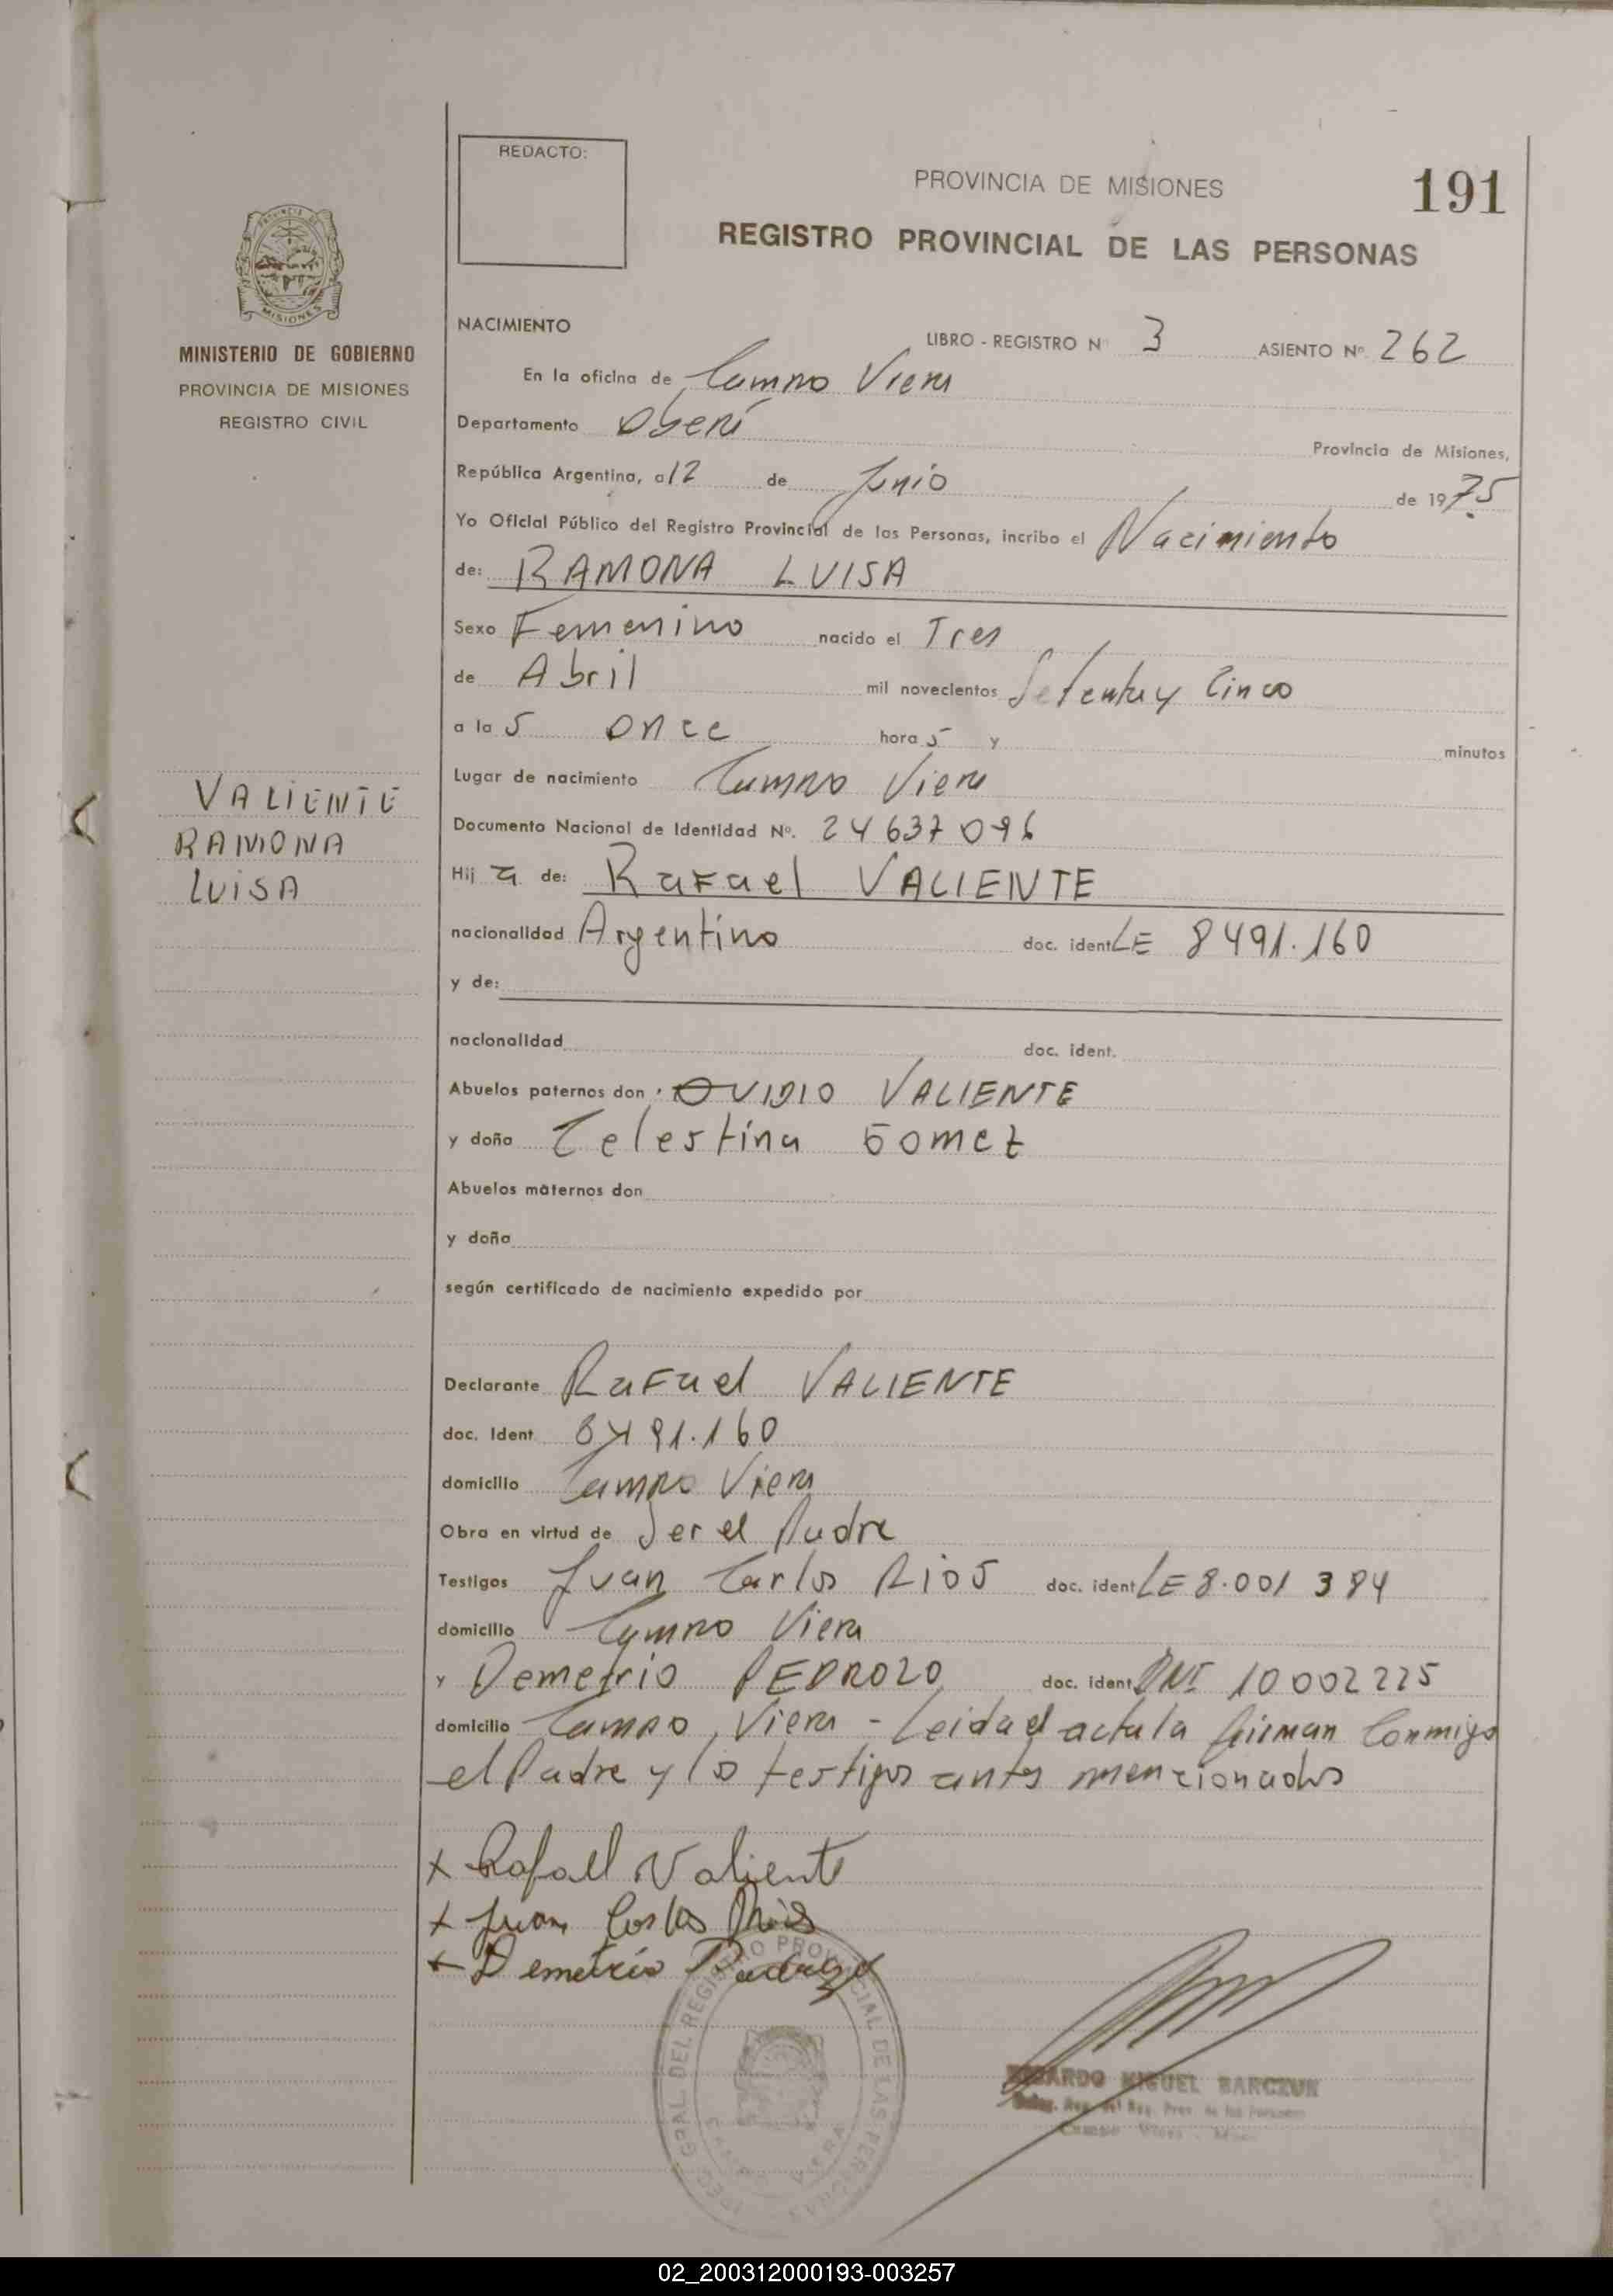 REDACTO:
PROVINCIA DE MISIONES
191
REGISTRO PROVINCIAL DE LAS PERSONAS
MISIONES
MINISTERIO DE GOBIERNO
PROVINCIA DE MISIONES
REGISTRO CIVIL
NACIMIENTO
LIBRO - REGISTRO Nº 3 ASIENTO Nº 262
En la oficina de Campo Viera
Departamento Oberá
Provincia de Misiones,
República Argentina, a 12 de Junio de 1975
Yo Oficial Público del Registro Provincial de las Personas, incribo el Nacimiento
de: RAMONA LUISA
Sexo Femenino nacido el Tres
de Abril mil novecientos Setenta y Cinco
a la s once hora s y minutos
Lugar de nacimiento Campo Viera
VALIENTE
RAMONA
LUISA
Documento Nacional de Identidad Nº. 24637096
Hij a de: Rafael VALIENTE
nacionalidad Argentino doc. ident. LE 8491.160
y de:
nacionalidad doc. ident.
Abuelos paternos don OVIDIO VALIENTE
y doña Celestina Gomez
Abuelos maternos don
y doña
según certificado de nacimiento expedido por
Declarante Rafael VALIENTE
doc. Ident 8491.160
domicilio Campo Viera
Obra en virtud de Ser el Padre
Testigos Juan Carlos Rios doc. ident LE 8.001 384
domicilio Campo Viera
y Demetrio PEDROZO doc. ident. DNI 10002225
domicilio Campo Viera - Leida el acta la firman Conmigo
el Padre y los testigos antes mencionados
x Rafael Valiente
x Juan Carlos Rios
x Demetrio Pedrozo
GRAL DEL REGISTRO PROVINCIAL DE LAS PERSONAS
CAMPO VIERA
MIGUEL BARCZUK
del Reg. Prov. de las Personas
Campo Viera - Mnes.
02_200312000193-003257